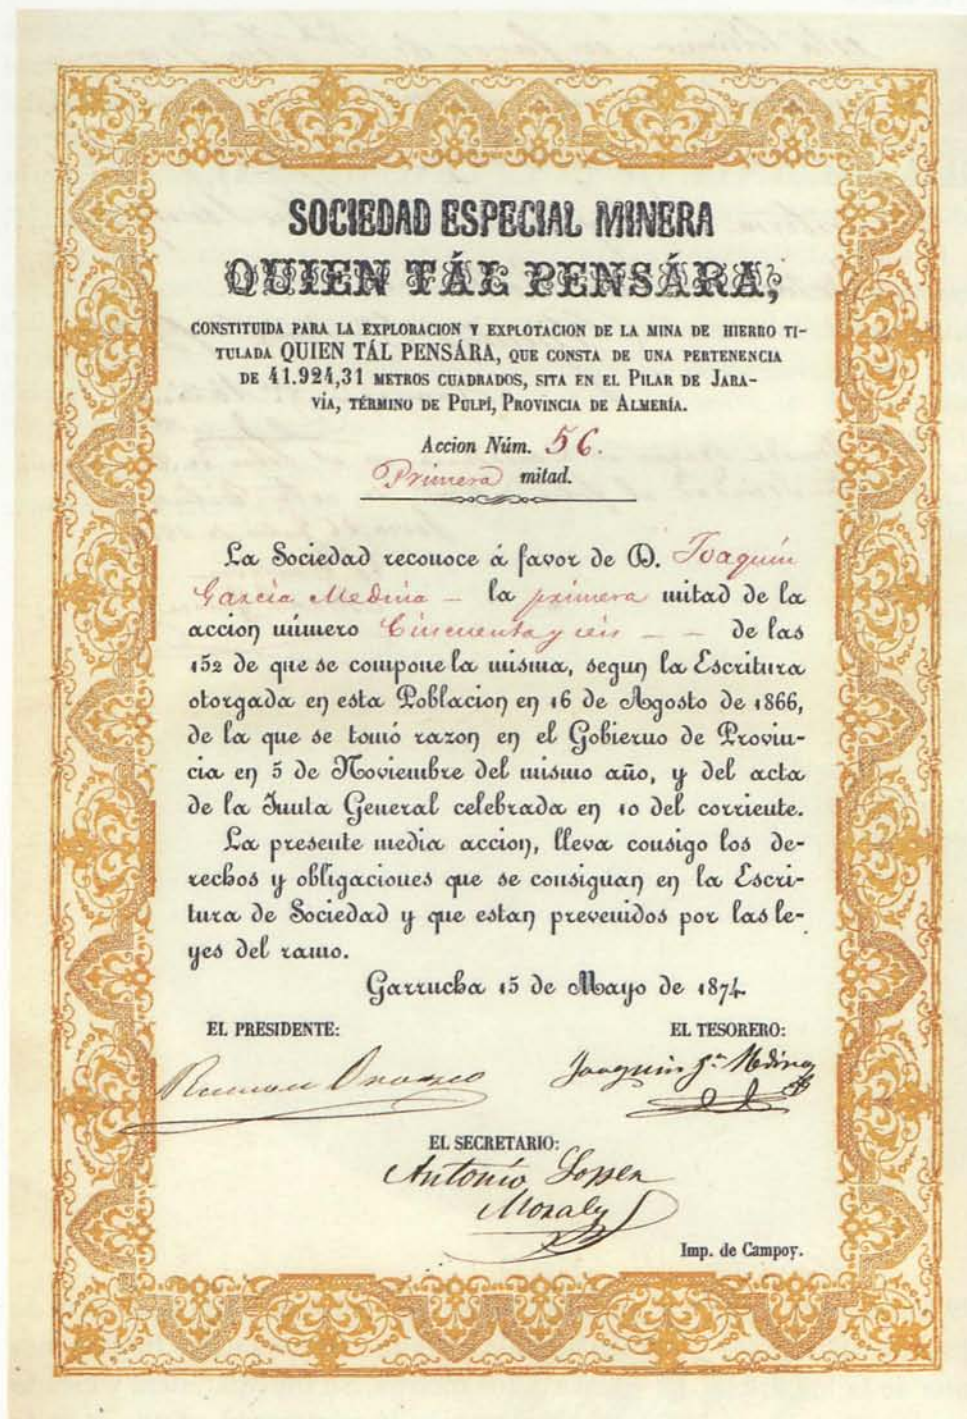 SOCIEDAD ESPECIAL MINERA
QUIEN TÁL PENSÁRA,
CONSTITUIDA PARA LA EXPLORACION Y EXPLOTACION DE LA MINA DE HIERRO TI-
TULADA QUIEN TÁL PENSÁRA, QUE CONSTA DE UNA PERTENENCIA
DE 41.924,31 METROS CUADRADOS, SITA EN EL PILAR DE JARA-
VÍA, TÉRMINO DE PULPÍ, PROVINCIA DE ALMERÍA.
Accion Núm. 56.
Primera mitad.
La Sociedad reconoce á favor de D. Joaquín
García Medina — la primera mitad de la
accion número Cincuenta y seis — — de las
152 de que se compone la misma, segun la Escritura
otorgada en esta Poblacion en 16 de Agosto de 1866,
de la que se tomó razon en el Gobierno de Provin-
cia en 5 de Noviembre del mismo año, y del acta
de la Junta General celebrada en 10 del corriente.
La presente media accion, lleva consigo los de-
rechos y obligaciones que se consignan en la Escri-
tura de Sociedad y que estan prevenidos por las le-
yes del ramo.
Garrucha 15 de Mayo de 1874
EL PRESIDENTE: EL TESORERO:
Ramon Orozco Joaquin Gª Medina
EL SECRETARIO:
Antonio Lopez
Morales
Imp. de Campoy.